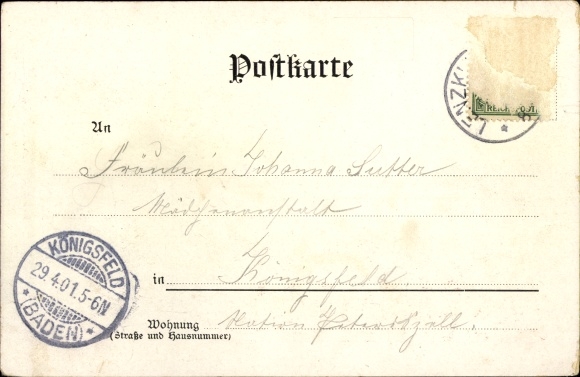 Postkarte
LENZK
REICHSPOST
An
Fräulein Johanna Sutter
Mädchenanstalt
in Königsfeld.
KÖNIGSFELD
29.4.01.5-6N
* (BADEN) *
Wohnung Station Peterzell.
(Straße und Hausnummer)